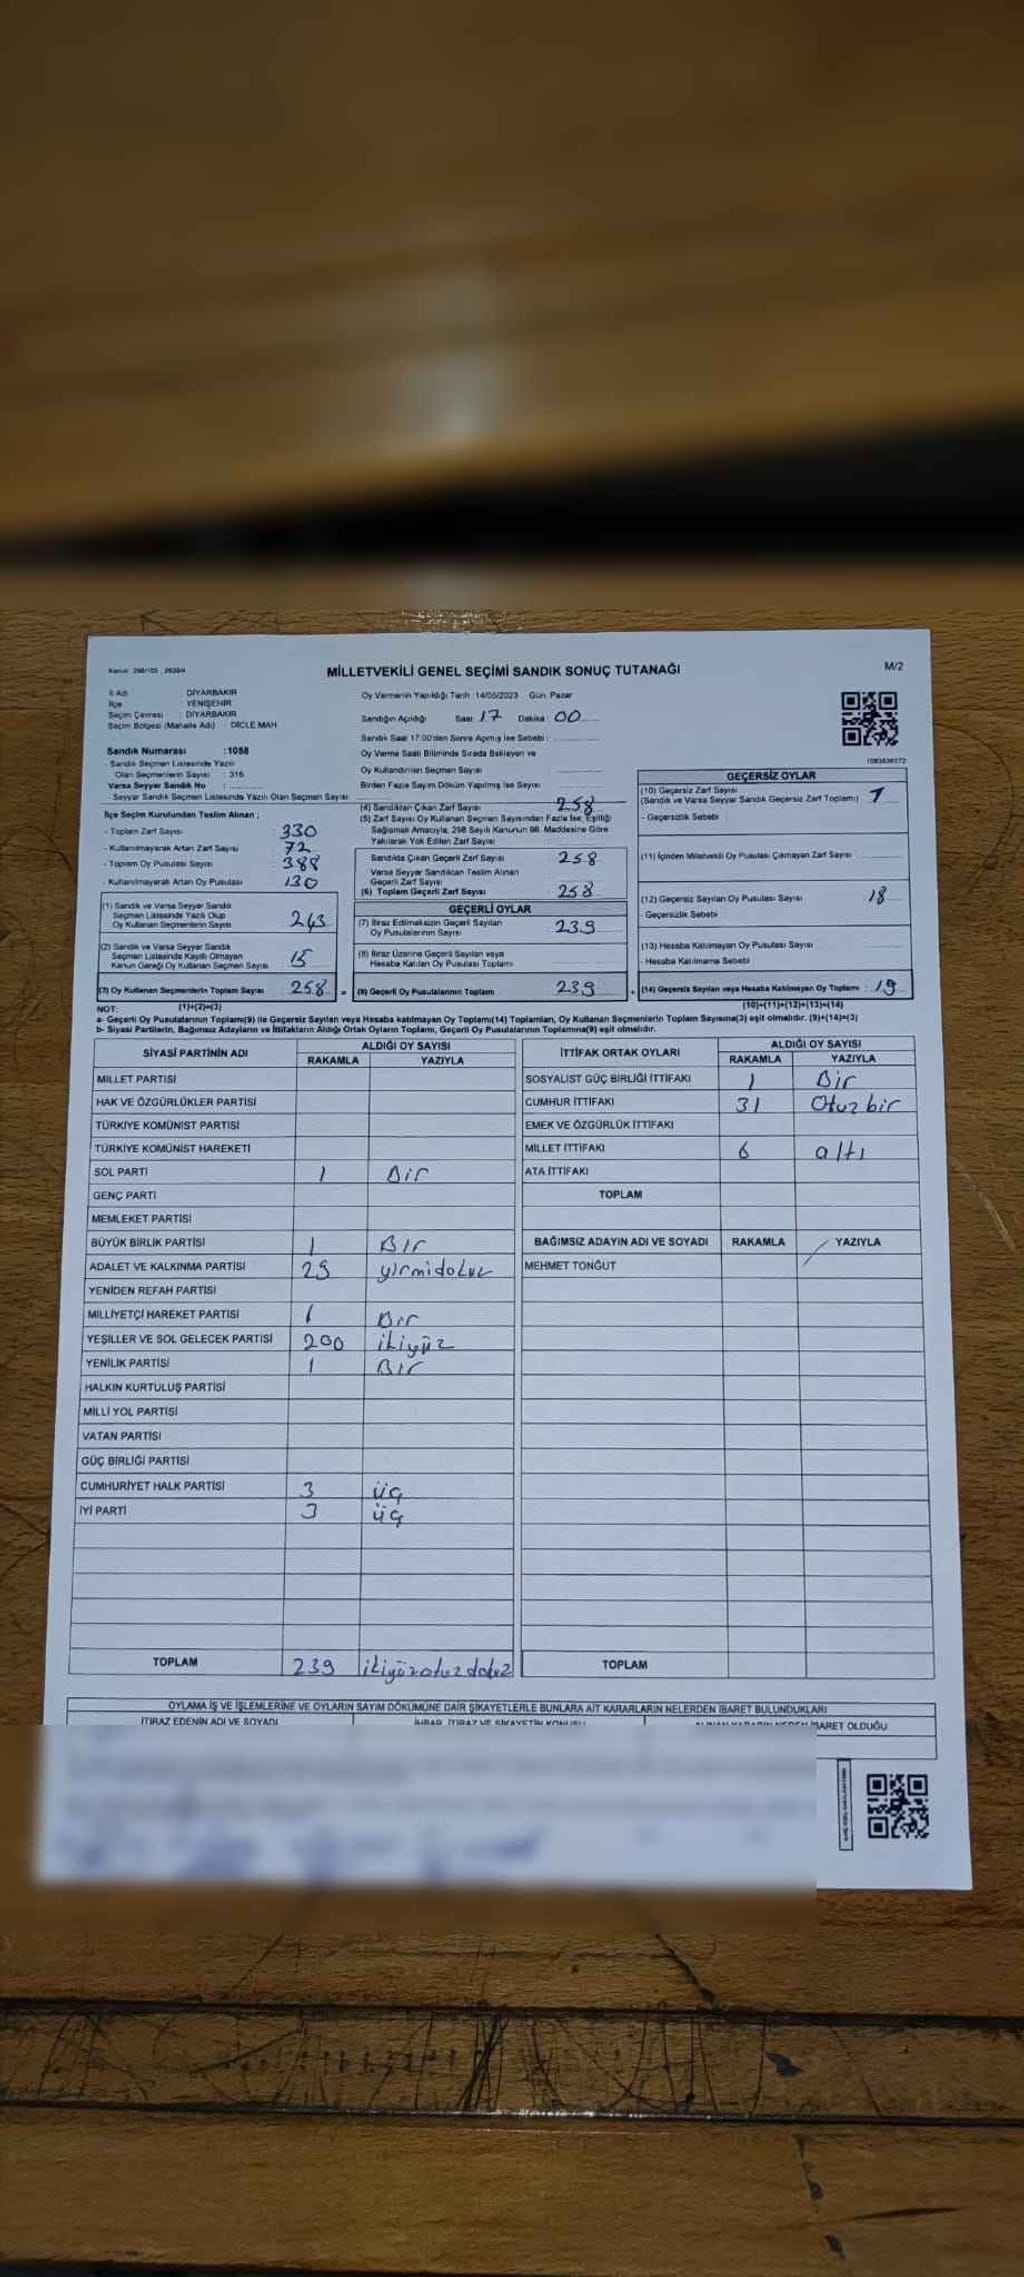 Kanun: 298/105, 2839/4
MİLLETVEKİLİ GENEL SEÇİMİ SANDIK SONUÇ TUTANAĞI
M/2
İl Adı : DİYARBAKIR
İlçe : YENİŞEHİR
Seçim Çevresi : DİYARBAKIR
Seçim Bölgesi (Mahalle Adı) : DİCLE MAH
Sandık Numarası : 1058
- Sandık Seçmen Listesinde Yazılı
Olan Seçmenlerin Sayısı : 316
Varsa Seyyar Sandık No :
- Seyyar Sandık Seçmen Listesinde Yazılı Olan Seçmen Sayısı
İlçe Seçim Kurulundan Teslim Alınan ;
- Toplam Zarf Sayısı : 330
- Kullanılmayarak Artan Zarf Sayısı : 72
- Toplam Oy Pusulası Sayısı : 388
- Kullanılmayarak Artan Oy Pusulası : 130
(1) Sandık ve Varsa Seyyar Sandık
Seçmen Listesinde Yazılı Olup
Oy Kullanan Seçmenlerin Sayısı 243
(2) Sandık ve Varsa Seyyar Sandık
Seçmen Listesinde Kayıtlı Olmayan
Kanun Gereği Oy Kullanan Seçmen Sayısı 15
(3) Oy Kullanan Seçmenlerin Toplam Sayısı 258 =
Oy Vermenin Yapıldığı Tarih 14/05/2023 Gün Pazar
Sandığın Açıldığı Saat 17 Dakika 00
Sandık Saat 17:00'den Sonra Açılmış İse Sebebi :
Oy Verme Saati Bitiminde Sırada Bekleyen ve
Oy Kullandırılan Seçmen Sayısı
Birden Fazla Sayım Döküm Yapılmış İse Sayısı
(4) Sandıktan Çıkan Zarf Sayısı 258
(5) Zarf Sayısı Oy Kullanan Seçmen Sayısından Fazla İse, Eşitliği
Sağlamak Amacıyla, 298 Sayılı Kanunun 98. Maddesine Göre
Yakılarak Yok Edilen Zarf Sayısı
Sandıkta Çıkan Geçerli Zarf Sayısı 258
Varsa Seyyar Sandıktan Teslim Alınan
Geçerli Zarf Sayısı
(6) Toplam Geçerli Zarf Sayısı 258
GEÇERLİ OYLAR
(7) İtiraz Edilmeksizin Geçerli Sayılan
Oy Pusulalarının Sayısı 239
(8) İtiraz Üzerine Geçerli Sayılan veya
Hesaba Katılan Oy Pusulası Toplamı
(9) Geçerli Oy Pusulalarının Toplamı 239 +
1083838172
GEÇERSİZ OYLAR
(10) Geçersiz Zarf Sayısı
(Sandık ve Varsa Seyyar Sandık Geçersiz Zarf Toplamı) 1
- Geçersizlik Sebebi
(11) İçinden Milletvekili Oy Pusulası Çıkmayan Zarf Sayısı
(12) Geçersiz Sayılan Oy Pusulası Sayısı 18
Geçersizlik Sebebi
(13) Hesaba Katılmayan Oy Pusulası Sayısı
- Hesaba Katılmama Sebebi
(14) Geçersiz Sayılan veya Hesaba Katılmayan Oy Toplamı : 19
NOT: (1)+(2)=(3) (10)+(11)+(12)+(13)=(14)
a- Geçerli Oy Pusulalarının Toplamı(9) ile Geçersiz Sayılan veya Hesaba katılmayan Oy Toplamı(14) Toplamları, Oy Kullanan Seçmenlerin Toplam Sayısına(3) eşit olmalıdır. (9)+(14)=(3)
b- Siyasi Partilerin, Bağımsız Adayların ve İttifakların Aldığı Ortak Oyların Toplamı, Geçerli Oy Pusulalarının Toplamına(9) eşit olmalıdır.
SİYASİ PARTİNİN ADI ALDIĞI OY SAYISI
RAKAMLA YAZIYLA
MİLLET PARTİSİ
HAK VE ÖZGÜRLÜKLER PARTİSİ
TÜRKİYE KOMÜNİST PARTİSİ
TÜRKİYE KOMÜNİST HAREKETİ
SOL PARTİ 1 Bir
GENÇ PARTİ
MEMLEKET PARTİSİ
BÜYÜK BİRLİK PARTİSİ 1 Bir
ADALET VE KALKINMA PARTİSİ 29 yirmidokuz
YENİDEN REFAH PARTİSİ
MİLLİYETÇİ HAREKET PARTİSİ 1 Bir
YEŞİLLER VE SOL GELECEK PARTİSİ 200 ikiyüz
YENİLİK PARTİSİ 1 Bir
HALKIN KURTULUŞ PARTİSİ
MİLLİ YOL PARTİSİ
VATAN PARTİSİ
GÜÇ BİRLİĞİ PARTİSİ
CUMHURİYET HALK PARTİSİ 3 üç
İYİ PARTİ 3 üç
TOPLAM 239 ikiyüzotuzdokuz
İTTİFAK ORTAK OYLARI ALDIĞI OY SAYISI
RAKAMLA YAZIYLA
SOSYALİST GÜÇ BİRLİĞİ İTTİFAKI 1 Bir
CUMHUR İTTİFAKI 31 Otuzbir
EMEK VE ÖZGÜRLÜK İTTİFAKI
MİLLET İTTİFAKI 6 altı
ATA İTTİFAKI
TOPLAM
BAĞIMSIZ ADAYIN ADI VE SOYADI RAKAMLA YAZIYLA
MEHMET TONĞUT
TOPLAM
OYLAMA İŞ VE İŞLEMLERİNE VE OYLARIN SAYIM DÖKÜMÜNE DAİR ŞİKAYETLERLE BUNLARA AİT KARARLARIN NELERDEN İBARET BULUNDUKLARI
İTİRAZ EDENİN ADI VE SOYADI İHBAR, İTİRAZ VE ŞİKAYETİN KONUSU ALINAN KARARIN NEDEN İBARET OLDUĞU